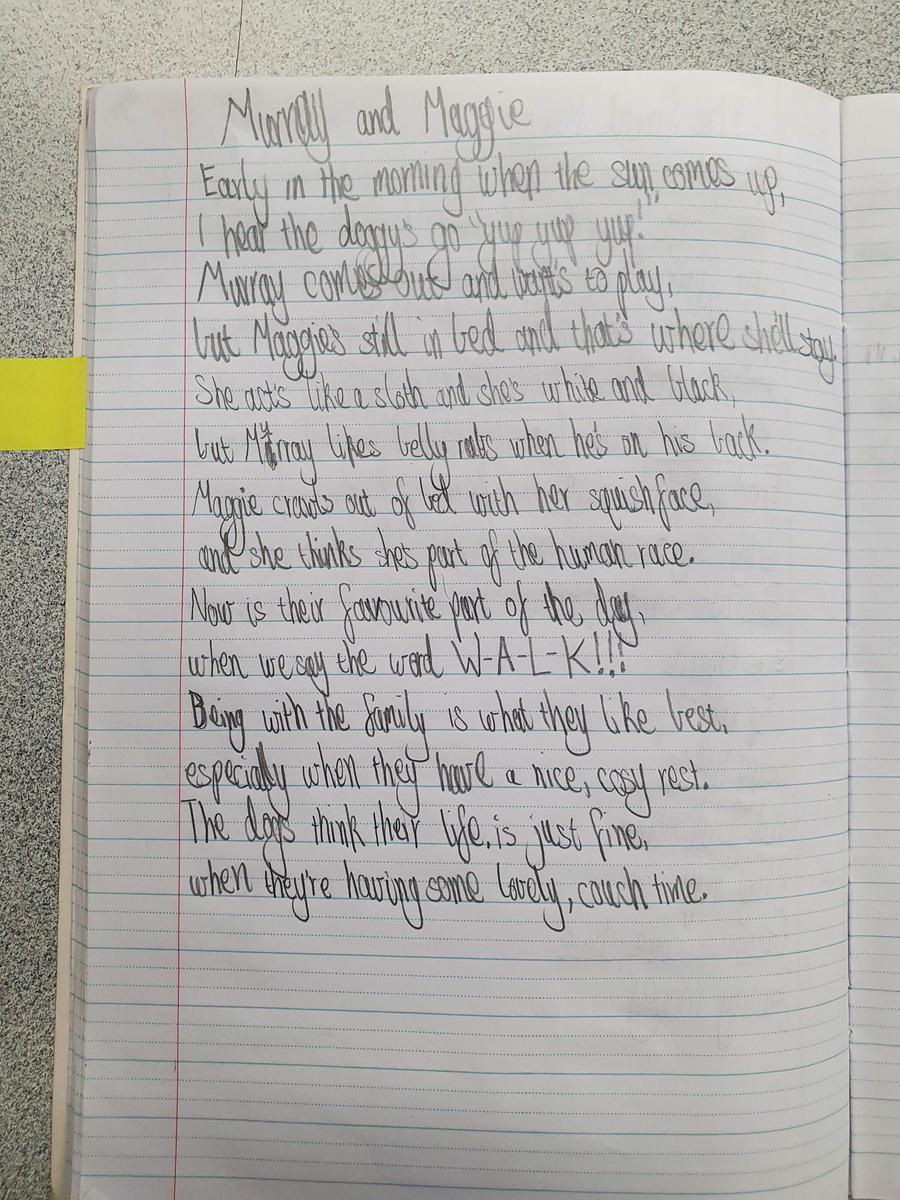 Murray and Maggie
Early in the morning when the sun, comes up,
I hear the doggy's go "yup yup yup!"
Murray comes out and wants to play,
but Maggie's still in bed and that's where she'll stay.
She act's like a sloth and she's white and black,
but Murray likes belly rubs when he's on his back.
Maggie crawls out of bed with her squish face,
and she thinks she's part of the human race.
Now is their favourite part of the day,
when we say the word W-A-L-K!!!
Being with the family is what they like best,
especially when they have a nice, cosy rest.
The dogs think their life, is just fine,
when they're having some lovely, couch time.